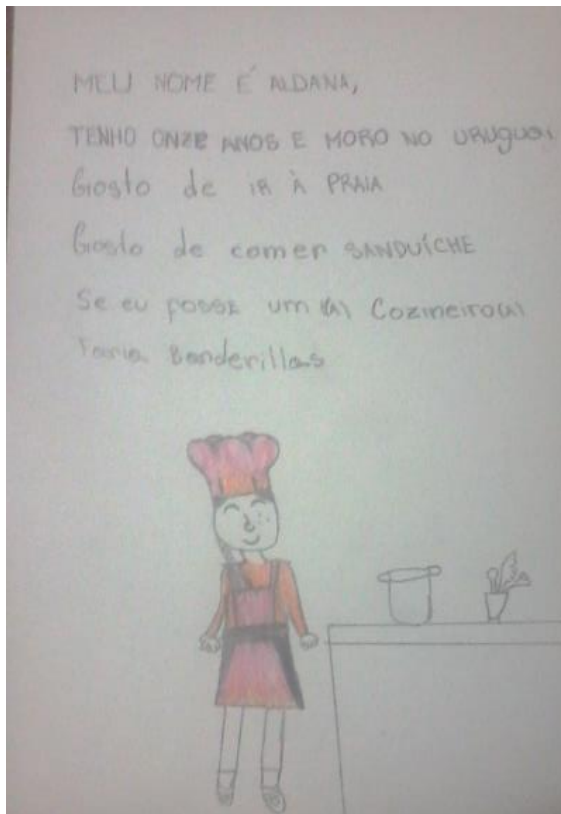 MEU NOME É ALDANA,
TENHO ONZE ANOS E MORO NO URUGUAI
Gosto de IR À PRAIA
Gosto de comer SANDUÍCHE
Se eu FOSSE um (A) Cozineiro(A)
Faria Banderillas